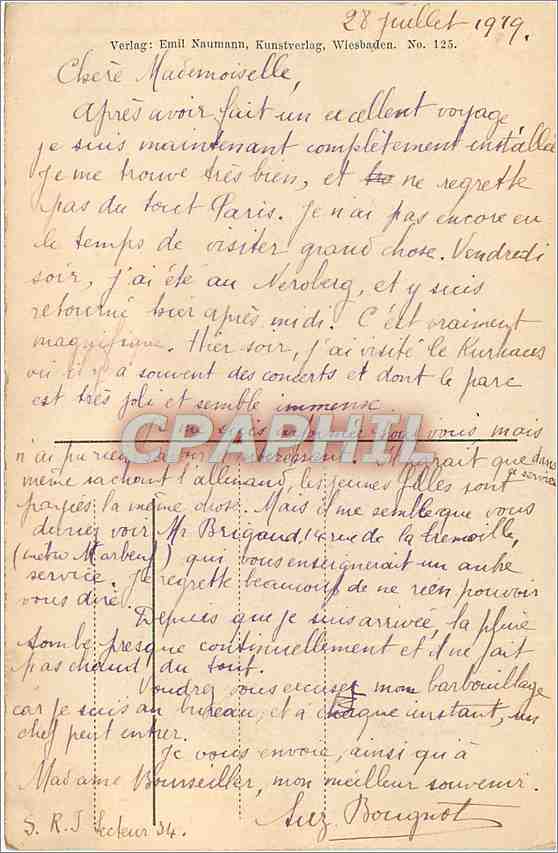 28 Juillet 1919.
Verlag: Emil Naumann, Kunstverlag, Wiesbaden. No. 125.
Chère Mademoiselle,
Après avoir fait un excellent voyage
je suis maintenant complètement installée
Je me trouve très bien, et ne regrette
pas du tout Paris. Je n'ai pas encore eu
le temps de visiter grand chose. Vendredi
soir, j'ai été au Neroberg, et y suis
retourné hier après midi. C'est vraiment
magnifique. Hier soir, j'ai visité le Kurhaus
où il y a souvent des concerts et dont le parc
est très joli et semble immense
Je me suis informée pour vous mais
CPAPHIL
n'ai pu rien savoir d'intéressant. Il paraît que dans
ce service
même sachant l'allemand, les jeunes filles sont
payées la même chose. Mais il me semble que vous
devriez voir Mr Brigaud, 14 rue de la Tremoille,
(métro Marbeuf) qui vous enseignerait un autre
service. Je regrette beaucoup de ne rien pouvoir
vous dire.
Depuis que je suis arrivée, la pluie
tombe presque continuellement et il ne fait
pas chaud du tout.
Voudrez vous excuser mon barbouillage
car je suis au bureau, et à chaque instant, un
chef peut entrer.
Je vous envoie, ainsi qu'à
Madame Bourseiller, mon meilleur souvenir.
Suz. Bougnot
S. R. J Secteur 34.